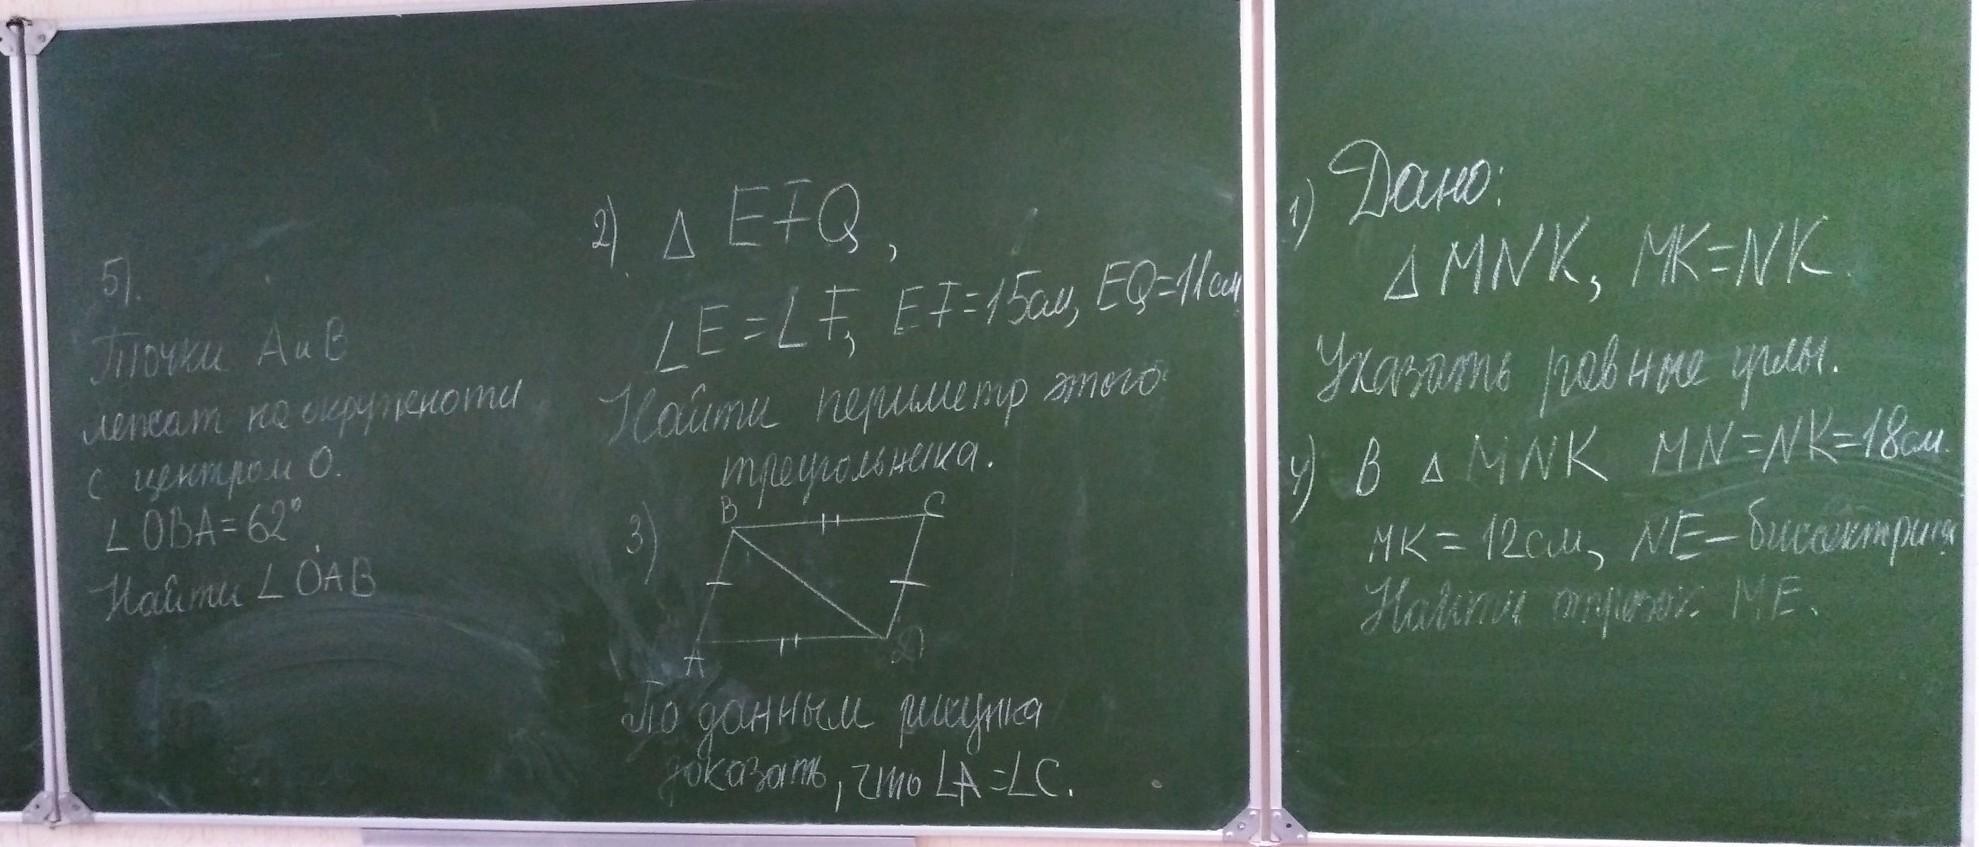 5).
Точки А и В
лежат на окружноти
с центром О.
∠OBA=62°
Найти ∠OAB
2). △ EFQ,
∠E=∠F, EF=15см, EQ=11см
Найти периметр этого
треугольника.
3)
B C
A D
По данным рисунка
доказать, что ∠A=∠C.
1) Дано:
△MNK, MK=NK.
Указать равные углы.
4) В △ MNK MN=NK=18см.
MK=12см, NE-биссектриса
Найти отрезок ME.